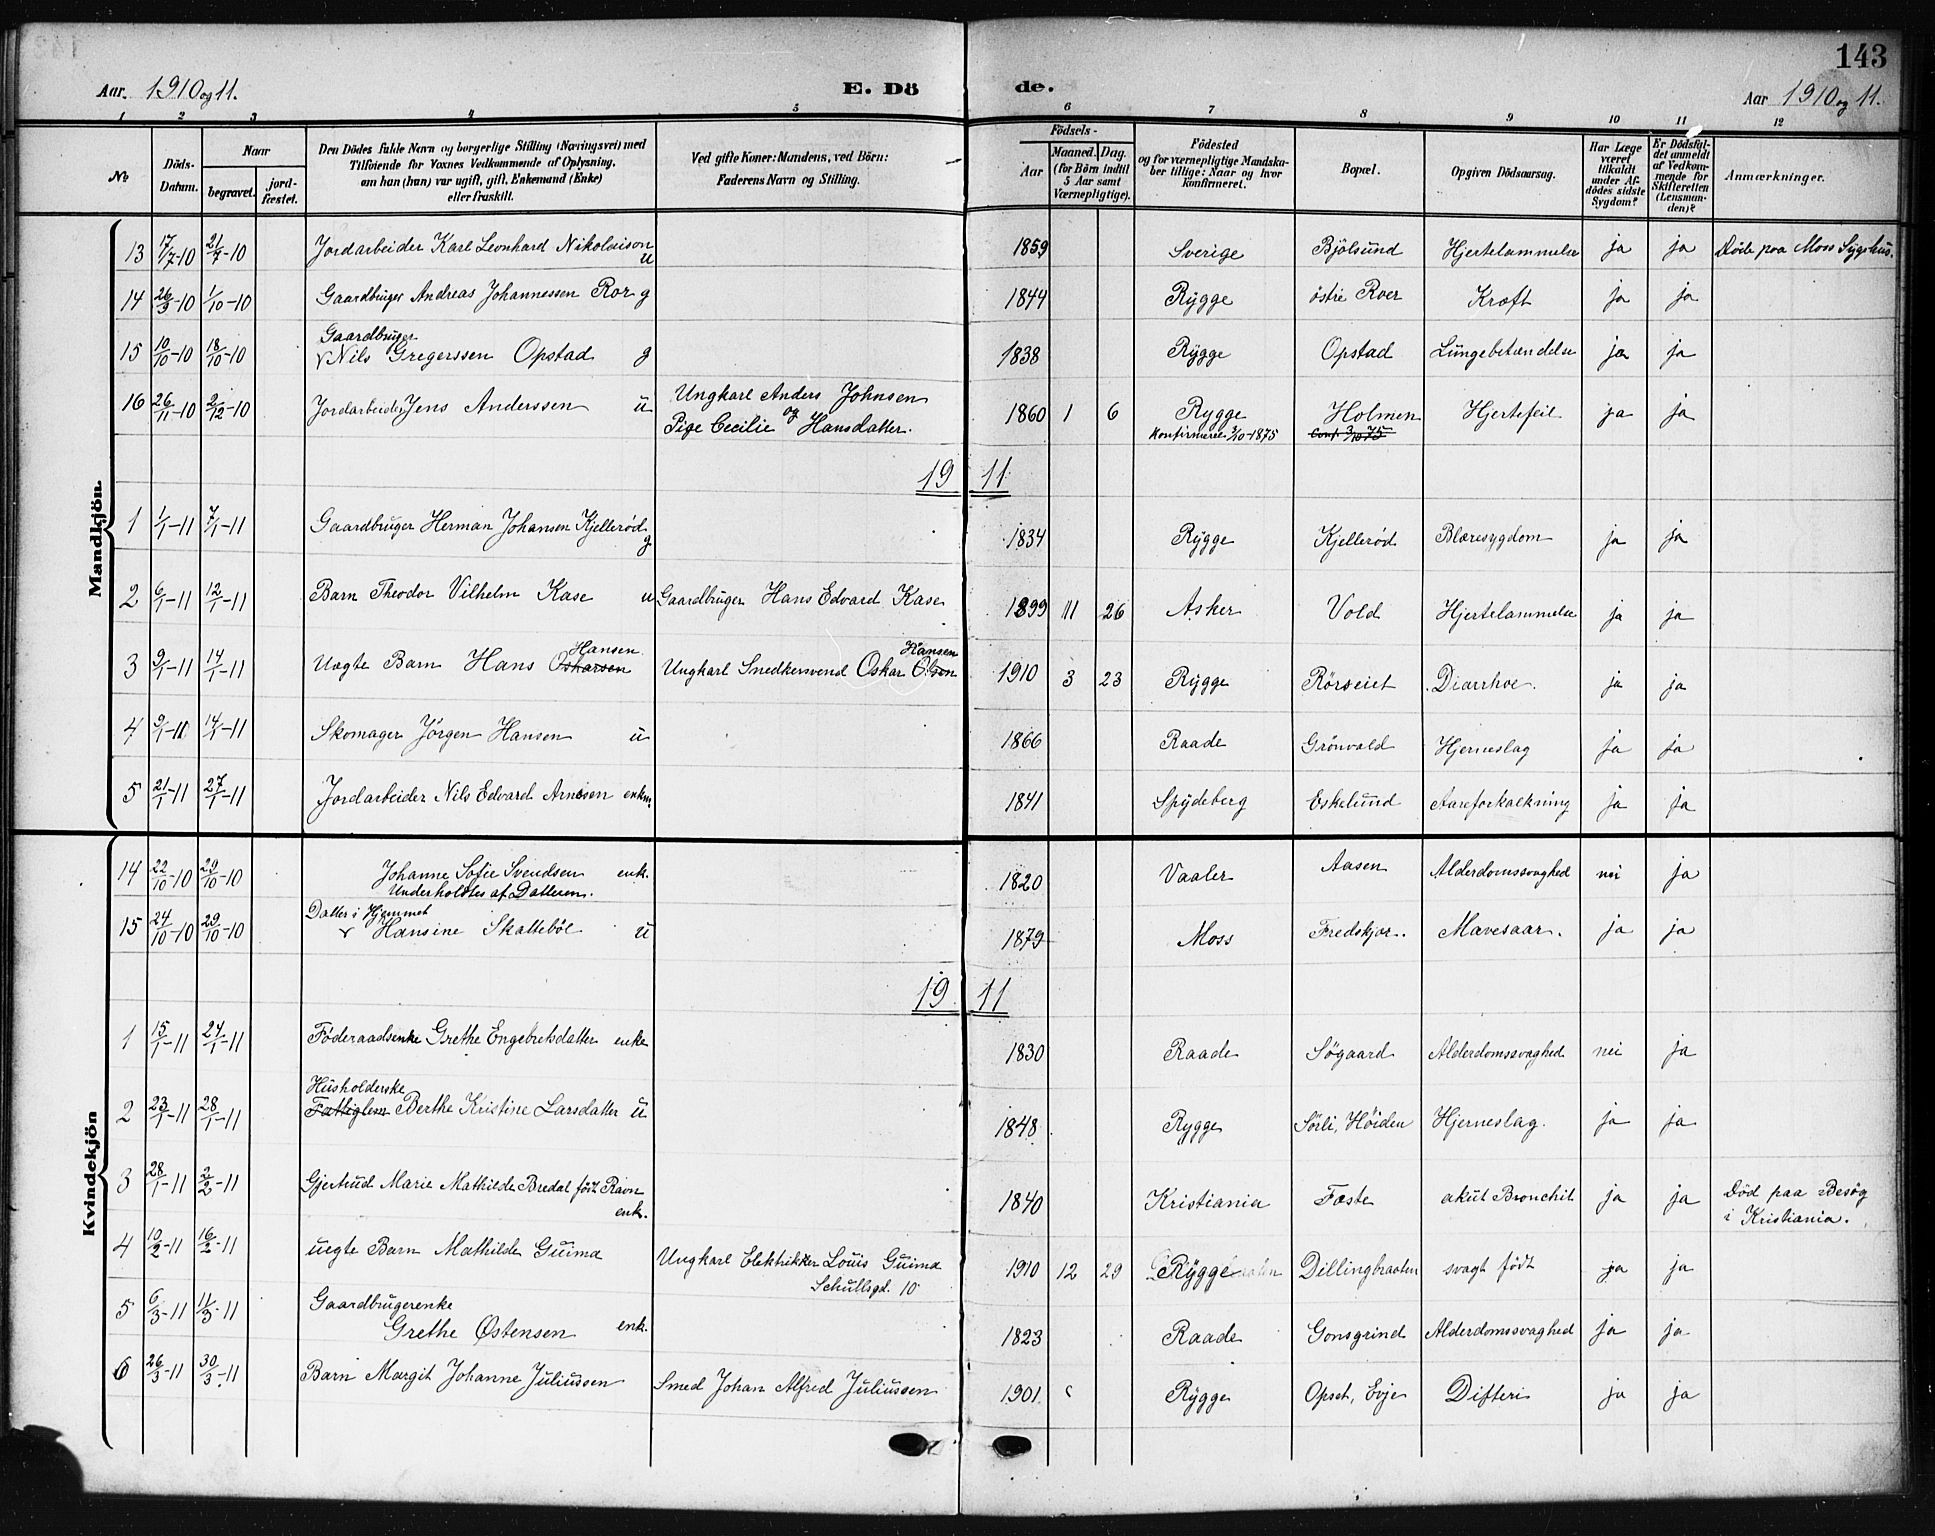 143
Aar. 1910 og 11. E. Dö de. Aar 1910 og 11.
1 2 3 4 5 6 7 8 9 10 11 12
No
Döds-Datum.
Naar
begravet. jord-fæstet.
Den Dödes fulde Navn og borgerlige Stilling (Næringsvei) med
Tilföiende for Voxnes Vedkommende af Oplysning,
om han (hun) var ugift, gift, Enkemand (Enke)
eller fraskilt.
Ved gifte Koner: Mandens, ved Börn:
Faderens Navn og Stilling.
Födsels-
Aar Maaned. Dag.
(for Börn indtil
5 Aar samt
Værnepligtige).
Födested
og for værnepligtige Mandska-
ber tillige: Naar og hvor
konfirmeret.
Bopæl.
Opgiven Dödsaarsag.
Har Læge
været
tilkaldt
under Af-
dödes sidste
Sygdom?
Er Dödsfal-
det anmeldt
af Vedkom-
mende for
Skifteretten
(Lensman-
den)?
Anmærkninger.
Mandkjön.
13 17/7-10 21/7-10 Jordarbeider Karl Leonhard Nikolaison u 1859 Sverige Bjölsund Hjertelammelse ja ja Döde paa Moss Sygehus.
14 26/9-10 1/10-10 Gaardbruger Andreas Johannessen Ror g 1844 Rygge östre Roer Kræft ja ja
15 10/10-10 18/10-10 Gaardbruger
Nils Gregerssen Opstad g 1838 Rygge Opstad Lungebetændelse ja ja
16 26/11-10 2/12-10 Jordarbeider Jens Anderssen u Ungkarl Anders Johnsen
og
Pige Cecilie Hansdatter. 1860 1 6 Rygge Holmen Hjertefeil ja ja
Konfirmeret 3/10-1875 Conf. 3/10 75
19 11
1 1/1-11 7/1-11 Gaardbruger Herman Johansen Kjellerød g 1834 Rygge Kjellerød Blæresygdom ja ja
2 6/1-11 12/1-11 Barn Theodor Vilhelm Kase u Gaardbruger Hans Edvard Kase 1899 11 26 Asker Vold Hjertelammelse ja ja
3 9/1-11 14/1-11 Uægte Barn Hans Oskarsen Hansen Ungkarl Snedkersvend Oskar Olsen Hansen 1910 3 23 Rygge Rörseiet Diarrhoe. ja ja
4 9/1-11 14/1-11 Skomager Jörgen Hansen u 1866 Raade Grönvold Hjerneslag ja ja
5 21/1-11 27/1-11 Jordarbeider Nils Edvard Arnesen enkm. 1841 Spydeberg Eskelund Aareforkalkning ja ja
Kvindekjön
14 22/10-10 29/10-10 Johanne Sofie Svendsen enk. 1820 Vaaler Aasen Alderdomssvaghed nei ja
Underholdtes af Datteren.
15 24/10-10 29/10-10 Datter i Hjemmet
Hansine Skattebøl u 1879 Moss Fredskjær. Mavesaar. ja ja
19 11
1 15/1-11 24/1-11 Föderaadsenke Grethe Engebretsdatter enke 1830 Raade Sögaard Alderdomssvaghed nei ja
2 23/1-11 28/1-11 Husholderske
Fattiglem Berthe Kristine Larsdatter u 1848 Rygge Sörli, Höiden Hjerneslag. ja ja
3 28/1-11 2/2-11 Gjertrud Marie Mathilde Bredal födt Ravn enk. 1840 Kristiania Fæste akut Bronchit ja ja Död paa Besög
i Kristiania.
4 10/2-11 16/2-11 uegte Barn Mathilde Guimd Ungkarl Elektriker Louis Guimd
Schullsgd. 10 1910 12 29 Rygge Dillingbraaten svagt födt ja ja
5 6/3-11 11/3-11 Gaardbrugerenke
Grethe Østensen enk. 1823 Raade Gonsgrind Alderdomssvaghed ja ja
6 26/3-11 30/3-11 Barn Margit Johanne Juliussen Smed Johan Alfred Juliussen 1901 Rygge Opset, Evje Difteri ja ja